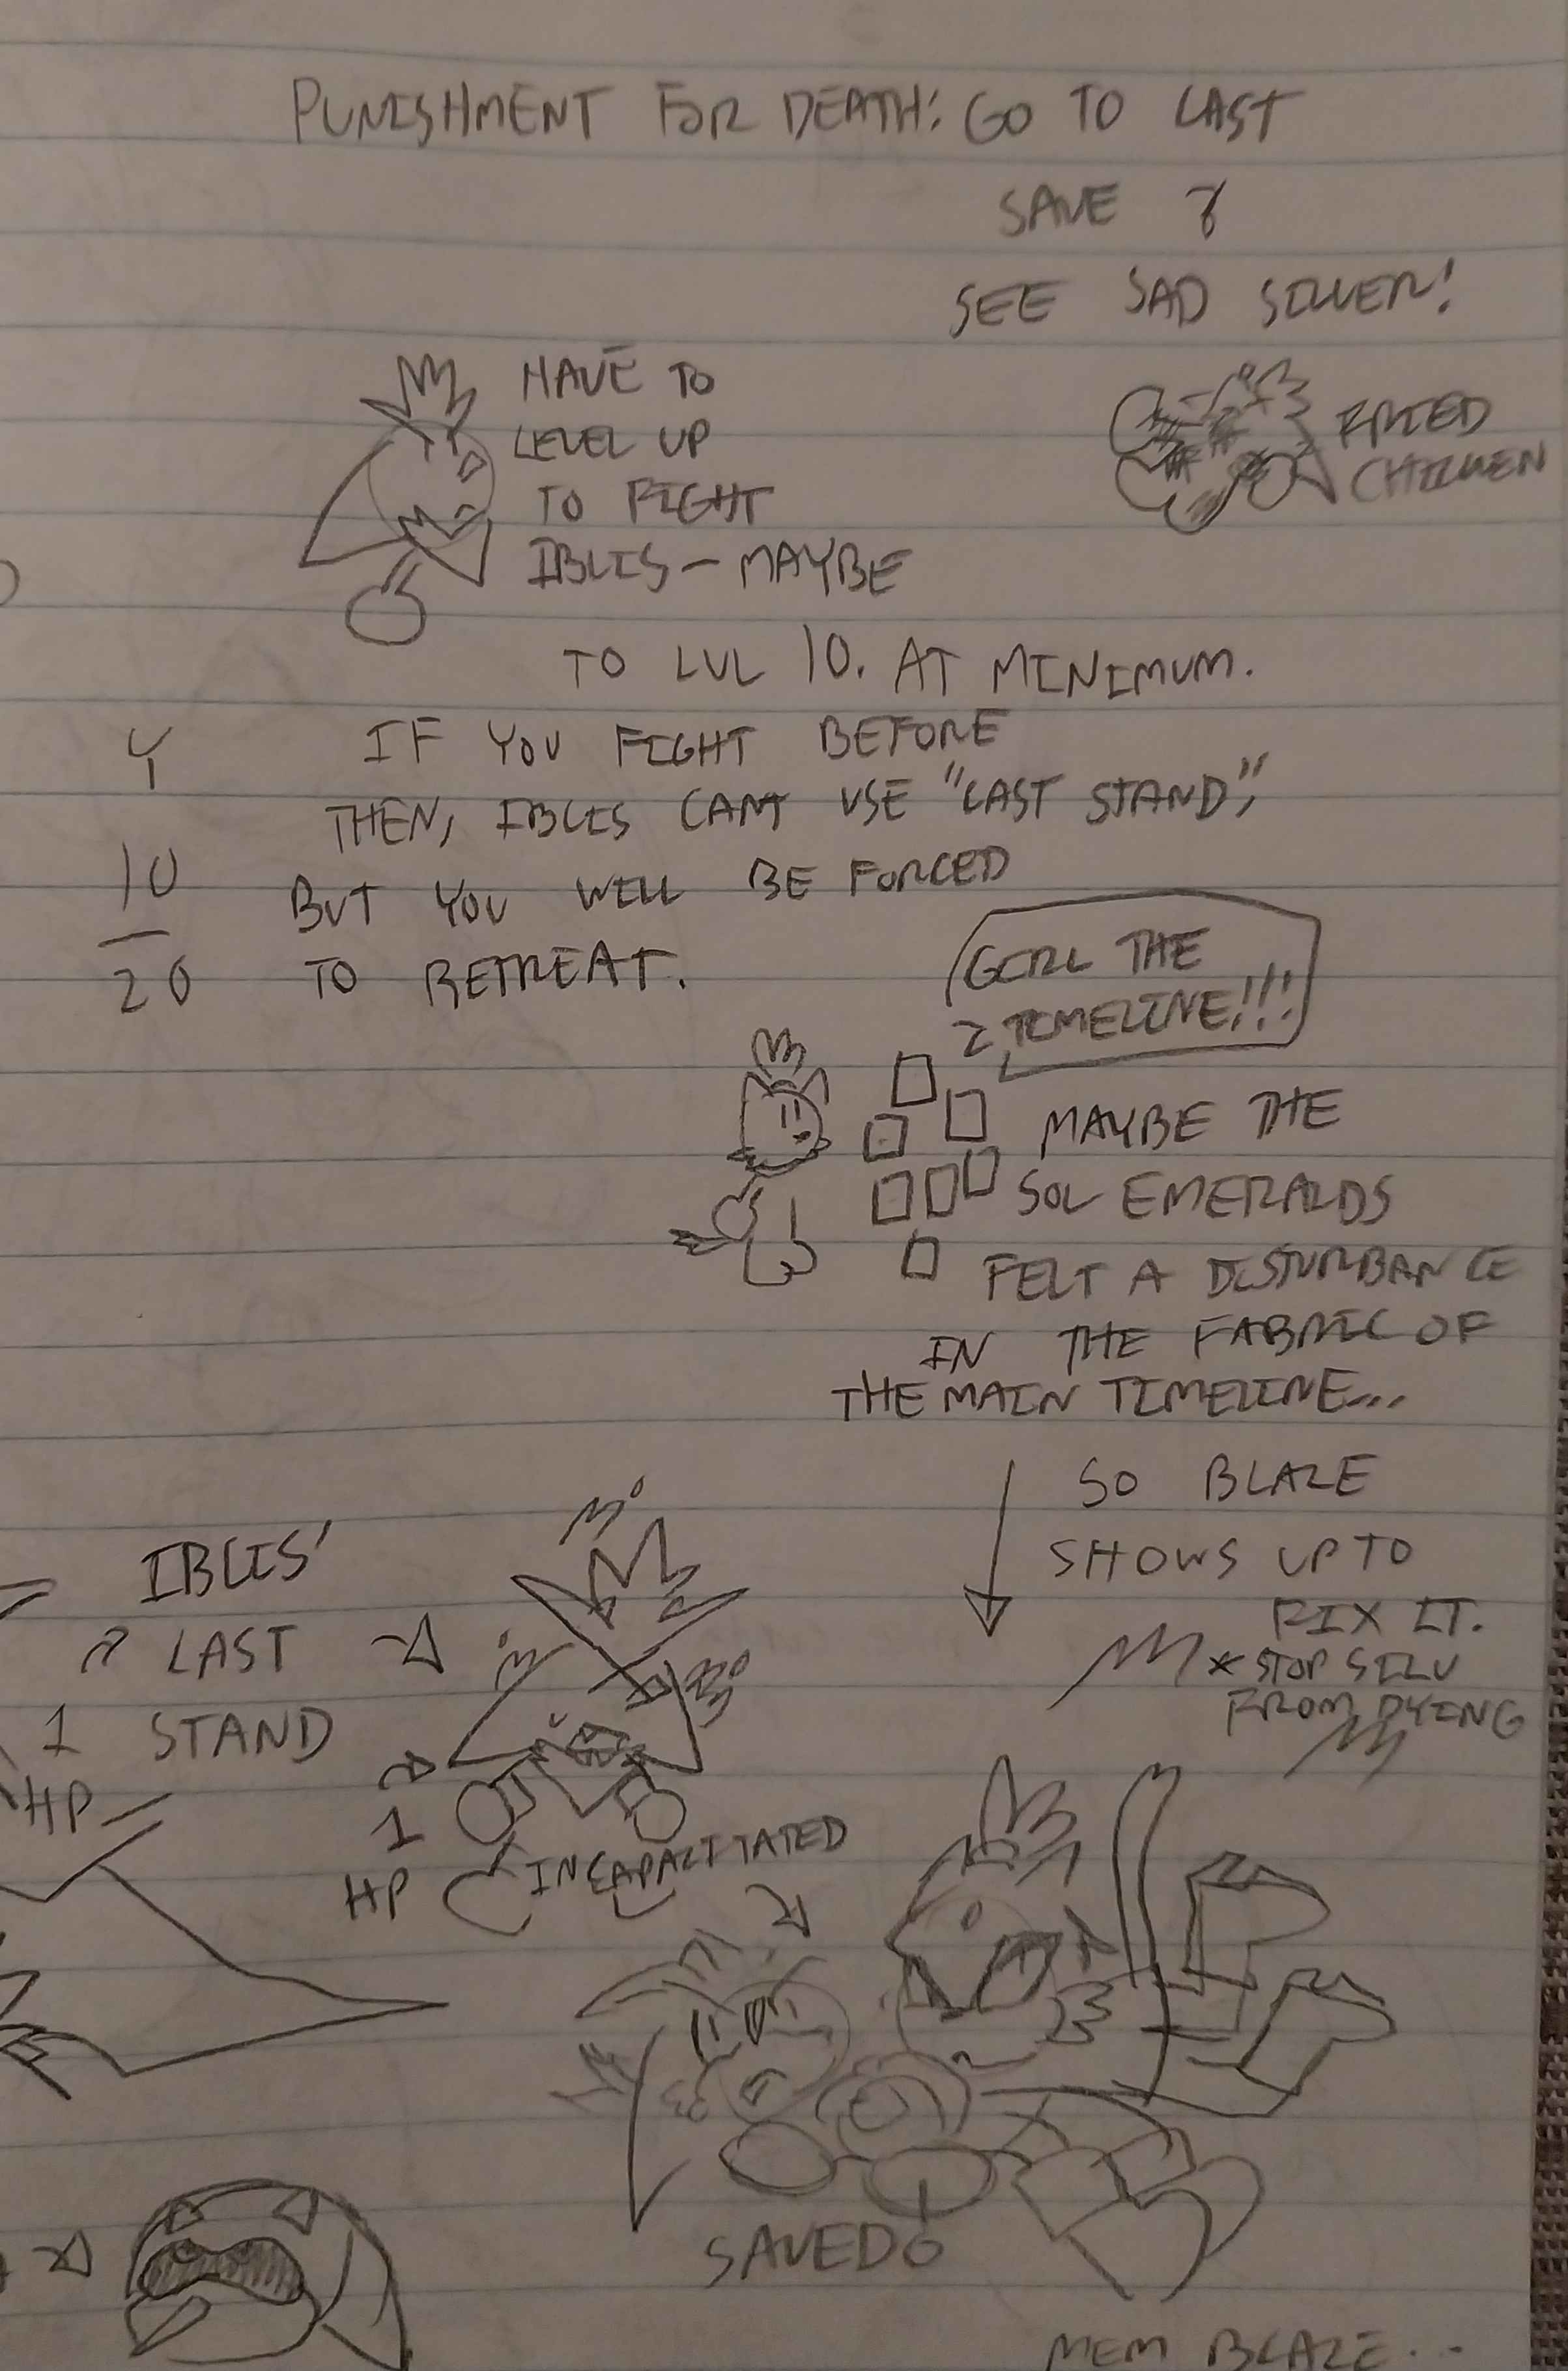 PUNISHMENT FOR DEATH: GO TO LAST
SAVE &
SEE SAD SILVER!
HAVE TO
LEVEL UP
TO FIGHT
IBLIS - MAYBE
TO LVL 10. AT MINIMUM.
FRIED
CHICKEN
IF YOU FIGHT BEFORE
THEN, IBLIS CANT USE "LAST STAND",
BUT YOU WILL BE FORCED
TO RETREAT.
Y
10
20
GIRL THE
TIMELINE!!!
MAYBE THE
SOL EMERALDS
FELT A DISTURBANCE
IN THE FABRIC OF
THE MAIN TIMELINE...
SO BLAZE
SHOWS UP TO
FIX IT.
*STOP SILV
FROM DYING
IBLIS'
LAST
STAND
1
HP
1
HP
INCAPACITATED
SAVED
MEM BLAZE...